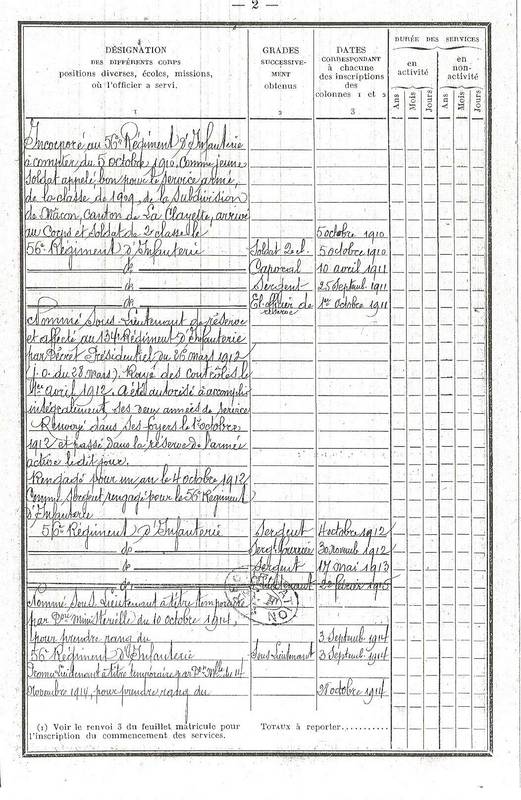 — 2 —
DÉSIGNATION
DES DIFFÉRENTS CORPS
positions diverses, écoles, missions,
où l'officier a servi.
1
GRADES
SUCCESSIVE-
MENT
obtenus
2
DATES
CORRESPONDANT
à chacune
des inscriptions
des
colonnes 1 et 2
3
DURÉE DES SERVICES
en
activité
en
non-
activité
Ans
Mois
Jours
Ans
Mois
Jours
Incorporé au 56e Régiment d'Infanterie
à compter du 5 octobre 1910, comme jeune
soldat appelé, bon pour le service armé,
de la classe de 1909, de la Subdivision
de Mâcon, canton de La Clayette, arrivé
au Corps et soldat de 2e classe le 5 octobre 1910
56e Régiment d'Infanterie Soldat 2e cl. 5 octobre 1910
do Caporal 10 avril 1911
do Sergent 25 Septemb. 1911
do El. officier de réserve 1er octobre 1911
Nommé Sous-Lieutenant de réserve
et affecté au 134e Régiment d'Infanterie
par Décret Présidentiel du 26 mars 1912
(j.o. du 28 mars). Rayé des contrôles le
1er avril 1912. A été autorisé à accomplir
intégralement ses deux années de service
Renvoyé dans ses foyers le 1er octobre
1912 et passé dans la réserve de l'armée
active le dit jour.
Rengagé pour un an le 4 octobre 1912
Comme Sergent rengagé pour le 56e Régiment
d'Infanterie
56e Régiment d'Infanterie Sergent 4 octobre 1912
do Sergt Fourrier 30 novemb. 1912
do Sergent 17 mai 1913
do
Nommé Sous-Lieutenant à titre temporaire
par Don Ministérielle du 10 octobre 1914,
pour prendre rang du 3 Septemb. 1914
56e Régiment d'Infanterie Sous-Lieutenant 3 Septemb. 1914
Promu Lieutenant à titre temporaire par Don Mlle du 14
Novembre 1914, pour prendre rang du octobre 1914
(1) Voir le renvoi 3 du feuillet matricule pour
l'inscription du commencement des services.
TOTAUX à reporter